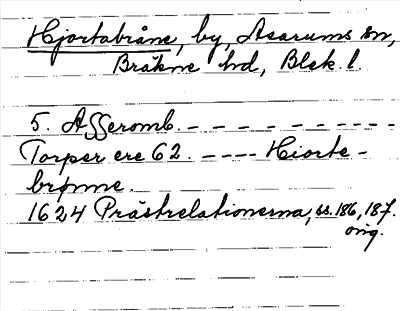 Hjortabråne, by, Asarums sn,
Bräkne hd, Blek. l.
5. Asseromb. - - - - - - - - - - -
Torper ere 62. - - - - Hiorte-
brønne.
1624 Prästrelationerna, ss. 186, 187.
orig.